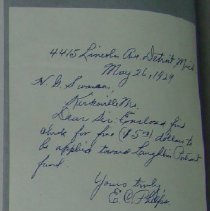 4465 Lincoln Ave Detroit Mich
May 26, 1929
Kirksville Mo.
Dear Sir: Enclosed find
check for five ($5 00) dollars to
be applied toward Laughlin
fund.
Yours truly,
E. C. Phelps